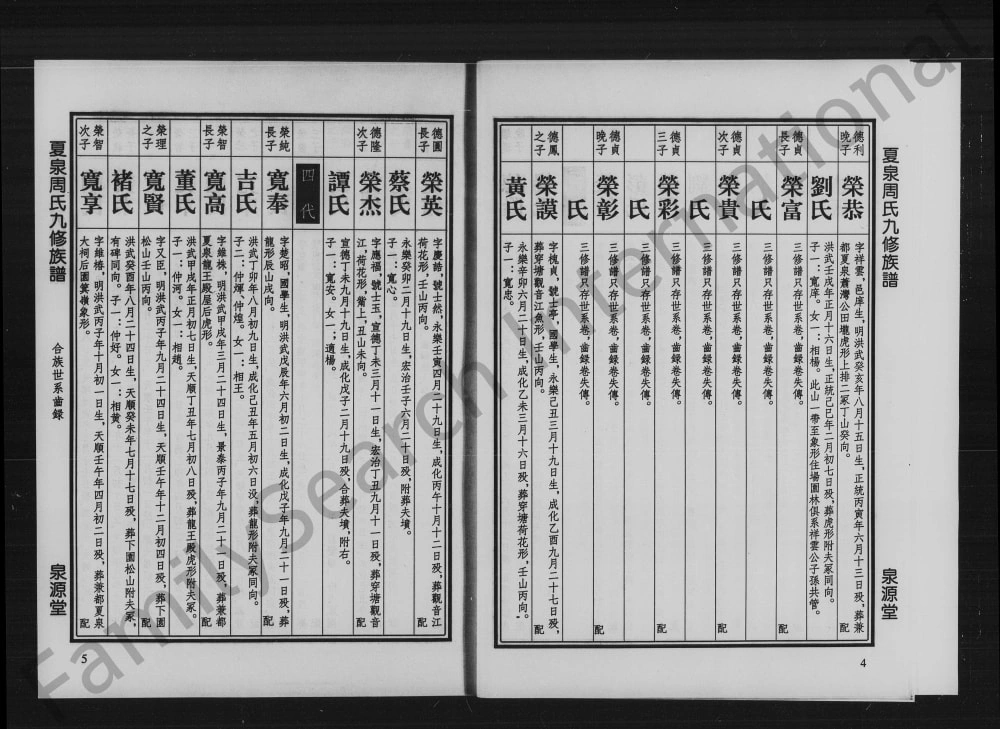 夏泉周氏九修族譜
泉源堂
4
德利晚子
榮恭
字祥雲，邑庠生，明洪武癸亥年八月十五日生，正統丙寅年六月十三日殁，葬兼都夏泉蕭灣公田壠虎形上排二冢丁山癸向。
配
劉氏
洪武壬戌年正月十六日生，正統己巳年二月初七日殁，葬虎形附夫冢同向。子一：寬庠。女一：相楊。此山一帶至象形住場園林俱系祥雲公子孫共管。
德貞長子
榮富
三修譜只存世系卷，齒錄卷失傳。
配
氏
三修譜只存世系卷，齒錄卷失傳。
德貞次子
榮貴
三修譜只存世系卷，齒錄卷失傳。
配
氏
三修譜只存世系卷，齒錄卷失傳。
德貞三子
榮彩
三修譜只存世系卷，齒錄卷失傳。
配
氏
三修譜只存世系卷，齒錄卷失傳。
德貞晚子
榮彰
三修譜只存世系卷，齒錄卷失傳。
配
氏
三修譜只存世系卷，齒錄卷失傳。
德鳳之子
榮謨
字槐貞，號士亭，國學生，永樂己丑三月十九日生，成化乙酉九月二十七日殁，葬穿塘觀音江魚形，壬山丙向。
配
黃氏
永樂辛卯六月二十日生，成化乙未三月十六日殁，葬穿塘荷花形，壬山丙向。子一：寬忠。
德圓長子
榮英
字慶皓，號士然，永樂壬寅四月二十九日生，成化丙午十月十二日殁，葬觀音江荷花形，壬山丙向。
配
蔡氏
永樂癸卯二月十九日生，宏治壬子六月二十日殁，附葬夫墳。子一：寬心。
德隆次子
榮杰
字應福，號士玉，宣德丁未三月十一日生，宏治丁丑九月十一日殁，葬穿塘觀音江，荷花形，衞上，丑山未向。
配
譚氏
宣德丁未九月十九日生，成化戊子二月十九日殁，合葬夫墳，附右。子一：寬安。女一；適楊。
四代
榮純長子
寬奉
字楚昭，國學生，明洪武戊辰年六月初二日生，成化戊子年九月二十一日殁，葬龍形辰山戌向。
配
吉氏
洪武丁卯年八月初九日生，成化己丑年五月初六日没，葬龍形附夫冢同向。子二：仲煇、仲煌。女一：相王。
榮智長子
寬高
字維株，明洪武甲戌年三月二十四日生，景泰丙子年九月二十一日殁，葬兼都夏泉龍王殿屋后虎形。
配
董氏
洪武甲戌年正月初七日生，天順丁丑年七月初八日殁，葬龍王殿虎形附夫冢。子一：仲河。女一：相趙。
榮理之子
寬賢
字又臣，明洪武丙子年九月二十四日生，天順壬午年十二月初四日殁，葬下園松山壬山丙向。
配
褚氏
洪武癸酉年八月二十四日生，天順癸未年七月十七日殁，葬下園松山附夫冢，有碑同向。子一：仲好。女一：相黄。
榮智次子
寬享
字維椿，明洪武丙子年十月初一日生，天順壬午年四月初二日殁，葬兼都夏泉大祠后園箕嶺象形。
配
夏泉周氏九修族譜
合族世系齒錄
泉源堂
5
FamilySearch International